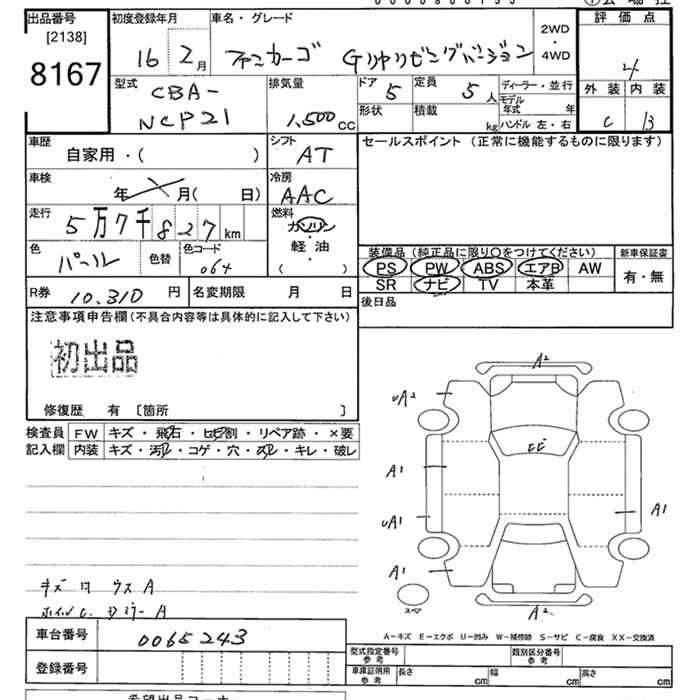 出品番号
[2138]
8167
初度登録年月
16 2月
車名・グレード
ファンカーゴ Gリヤリビングバージョン
2WD
・
4WD
評価点
4
外装 内装
C B
型式
CBA-
NCP21
排気量
1,500 CC
ドア 5
定員 5人
形状
積載 kg
ディーラー・並行
モデル年式 年
ハンドル 左・右
車歴
自家用・( )
シフト
AT
セールスポイント(正常に機能するものに限ります)
車検
年 月( 日)
冷房
AAC
走行
5万7千827km
燃料
ガソリン
・
軽油
・
( )
色
パール
色替
色コード
064
装備品(純正品に限り〇をつけてください)
PS PW ABS エアB AW
SR ナビ TV 本革
新車保証書
有・無
R券 10,310円
名変期限 月 日
後日品
注意事項申告欄(不具合内容等は具体的に記入して下さい)
初出品
修復歴 有 〔箇所 〕
検査員
記入欄
FW キズ・飛石・ヒビ割・リペア跡・×要
内装 キズ・汚レ・コゲ・穴・スレ・キレ・破レ
A2
UA2
A1
UA1
A1
A1
A2
スペア
A-キズ E-エクボ U-凹み W-補修跡 S-サビ C-腐食 XX-交換済
車台番号 0065243
登録番号
型式指定番号
参考
類別区分番号
参考
車庫証明用
参考
長さ cm
幅 cm
高さ cm